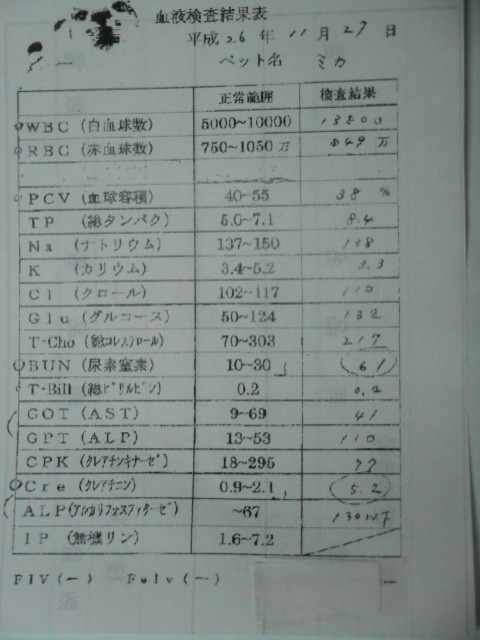 血液検査結果表
平成 26 年 11 月 27 日
ペット名 ミカ
正常範囲 検査結果
WBC (白血球数) 5000~10000 13800
RBC (赤血球数) 750~1050万 849万
PCV (血球容積) 40~55 38 %
TP (総タンパク) 5.0~7.1 8.4
Na (ナトリウム) 137~150 138
K (カリウム) 3.4~5.2 3.3
Cl (クロール) 102~117 110
Glu (グルコース) 50~124 132
T-Cho (総コレステロール) 70~303 217
BUN (尿素窒素) 10~30 61
T-Bill (総ビリルビン) 0.2 0.2
GOT (AST) 9~69 41
GPT (ALP) 13~53 110
CPK (クレアチンキナーゼ) 18~295 77
Cre (クレアチニン) 0.9~2.1 5.2
ALP (アルカリフォスファターゼ) ~67
IP (無機リン) 1.6~7.2
FIV (-) Felv (-)